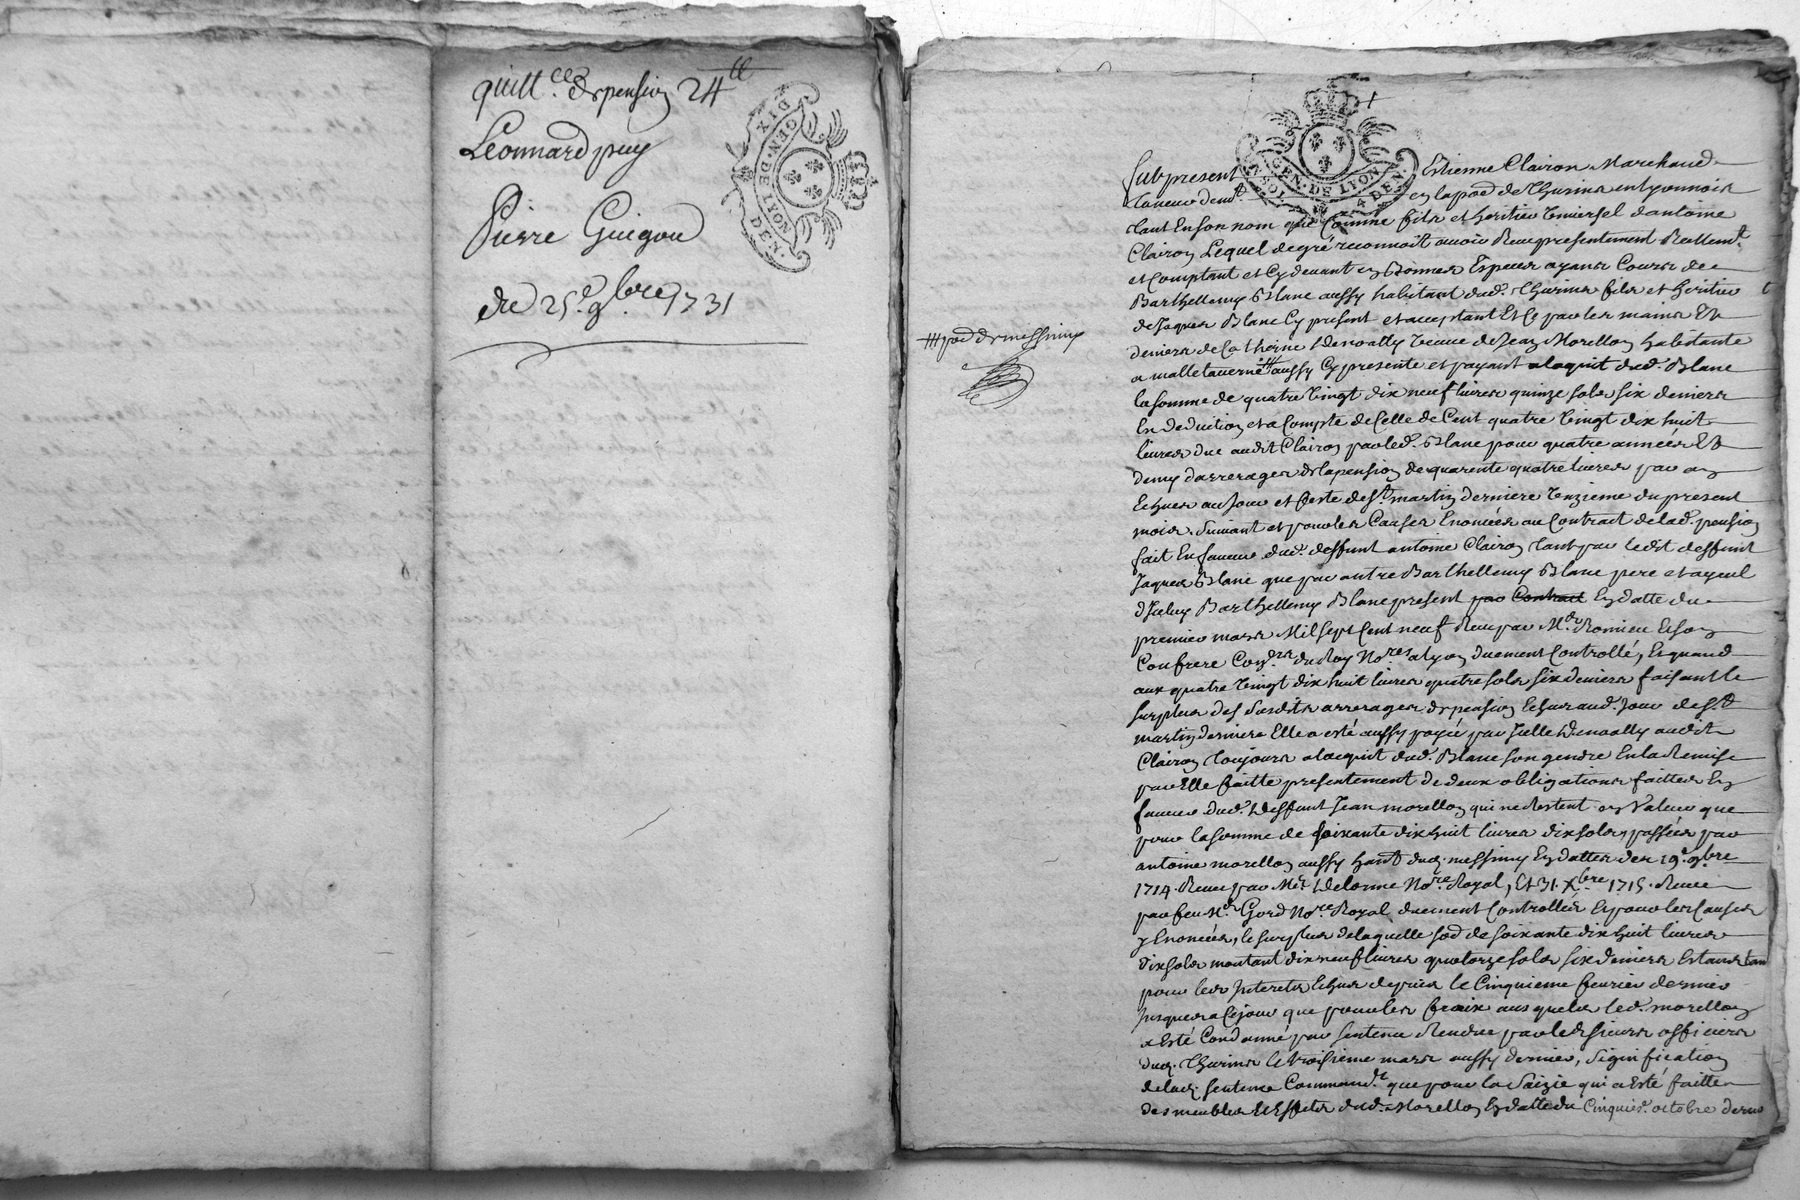 quitt.ce de pension 24ll
Léonnard puy
Pierre Guigou
du 25e 9bre 1731
DIX
GEN·DE LYON
DEN.
GEN·DE LYON
4 DEN.
Subpresent Estienne Clairon Marchand
taneur demt en la pard de Thurins en Lyonnois
tant En son nom que Comme fils et heritier Universel d'antoine
Clairon Lequel de gré reconnoit avoir Receu presentement Reellemt
et Comptant et Cy devant en Bonnes Especes ayans Cours de
Barthellemy Blanc aussy habitant dud. Thurins fils et heritier
de Jaques Blanc Cy present et acceptant Et Ce par les mains Et
deniers de Catherine Denoally veuve de Jean Morellon habitante
a malletaverne aussy Cy presente et payant a laquit dud. Blanc
la somme de quatre Vingt dix neuf livres quinze sols six deniers
En deduction et a Compte de Celle de Cent quatre Vingt dix huit
livres due audit Clairon par led. Blanc pour quatre années Et
demy d'arrerages de la pension de quarente quatre livres par an
Echues au Jour et feste de St martin derniere Unzieme du present
mois, Suivant et pour les Causes Enoncées au Contract de lad. pension
fait En faveur dud. deffunt antoine Clairon tant par ledit deffunt
Jaques Blanc que par autre Barthellemy Blanc pere et ayeul
d'Iceluy Barthellemy Blanc present par Contract En datte du
premier mars Mil sept Cent neuf Receu par Me Romieu Et son
Confrere Coners du Roy Nores a Lyon duement Controllé, Et quand
aux quatre Vingt dix huit livres quatre sols six deniers faisant le
surplus des susdits arrerages de pension Echus aud. Jour de St
martin derniere Elle a esté aussy payée par Icelle Denoally audit
Clairon toujours a laquit dud. Blanc son gendre En la Remise
par Elle faitte presentement de deux obligations faittes En
faveur dud. Deffunt Jean morellon qui ne Restent en Valeur que
pour la somme de soixante dix huit livres dix sols, passées par
antoine morellon aussy hant dud. messimy En dattes des 19e 9bre
1714. Receue par Me Delorme Nore Royal, Et 31. Xbre 1715. Receue
par feu Me Gord Nore Royal duement Controllées Et pour les Causes
y Enoncées, le surplus de laquelle sod de soixante dix huit livres
dix sols montant dix neuf livres quatorze sols six deniers Estans tant
pour les Interets Echus depuis le Cinquieme fevrier dernier
Jusques a Ce jour que pour les fraix ausquels led. morellon
a Esté Condamné par sentence Rendue par les sieurs officiers
dud. Thurins le troisieme mars aussy dernier, signification
de lad. sentence Commandt que pour la saizie qui a Esté faitte
des meubles Et Effets dud. Morellon En datte du Cinquie. octobre dernier
pard de messimy